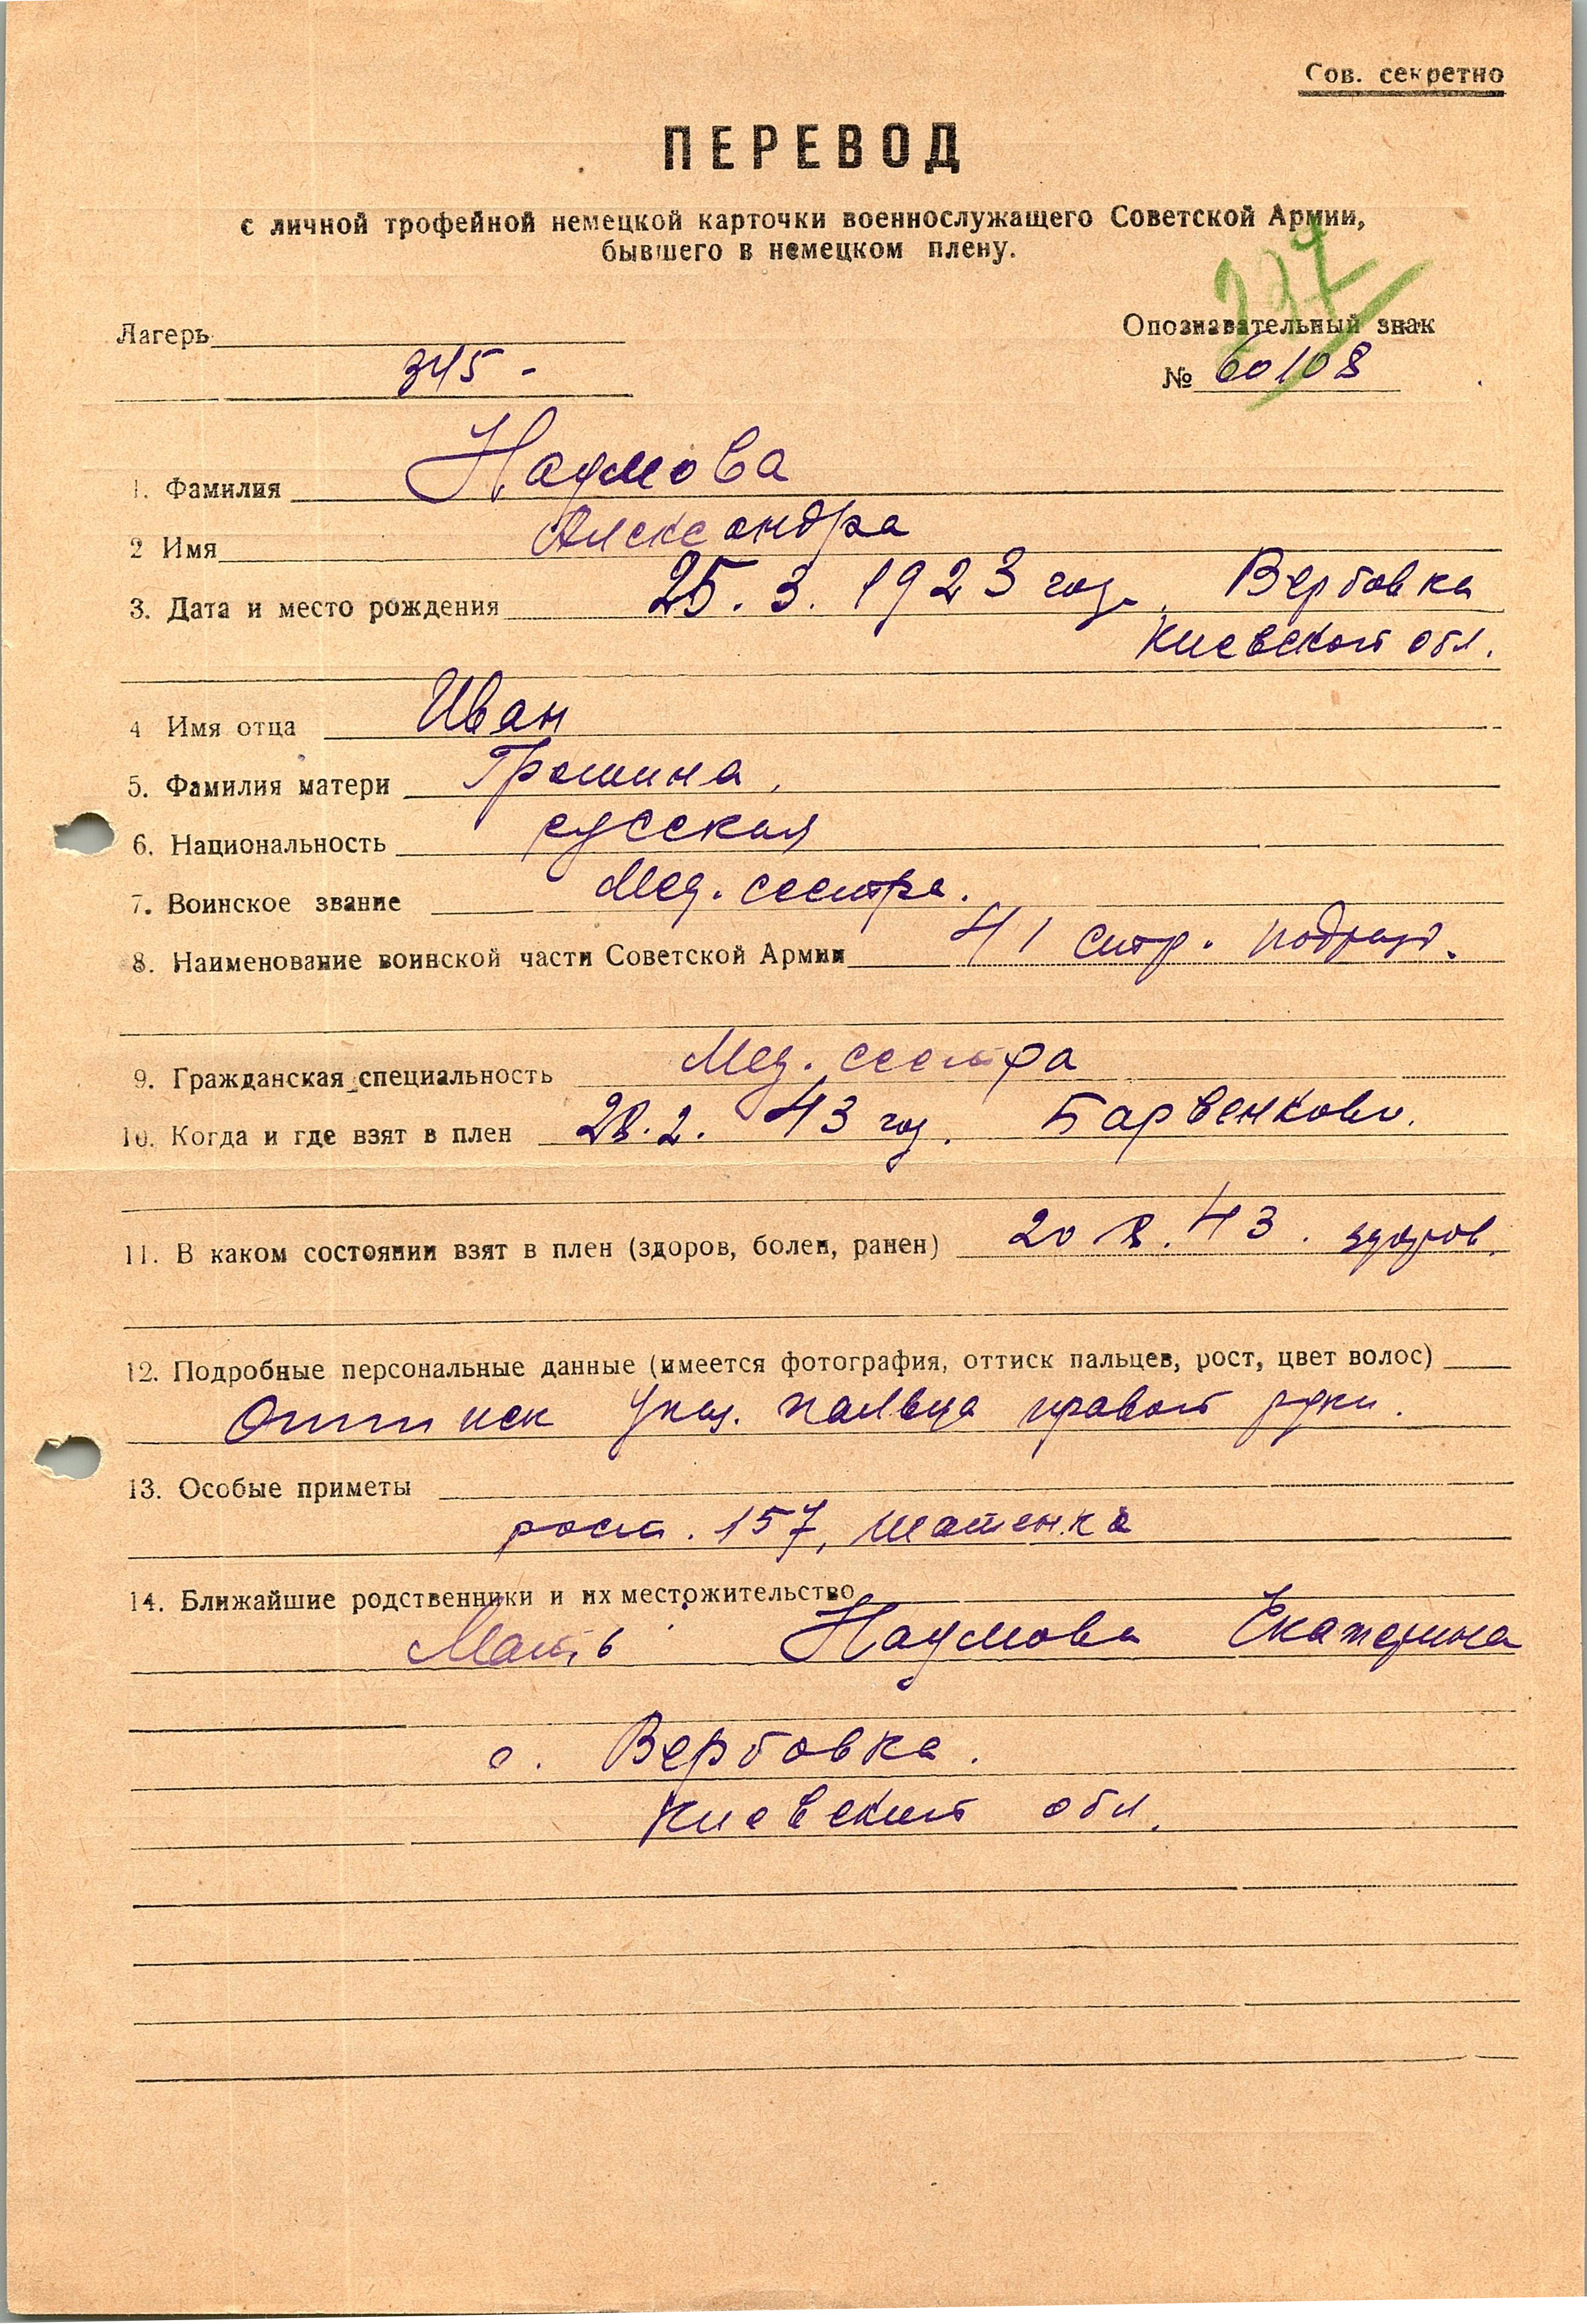 Сов. секретно
ПЕРЕВОД
с личной трофейной немецкой карточки военнослужащего Советской Армии,
бывшего в немецком плену.
237
Лагерь
Опознавательный знак
345 -
№ 60108
1. Фамилия Наумова
2 Имя Александра
3. Дата и место рождения 25.3.1923 год. Вербовка
Киевской обл.
4 Имя отца Иван
5. Фамилия матери Грошина,
6. Национальность русская
7. Воинское звание Мед. сестра.
8. Наименование воинской части Советской Армии 41 стр. подразд.
9. Гражданская специальность Мед. сестра
10. Когда и где взят в плен 28.2.43 год. Барвенково.
11. В каком состоянии взят в плен (здоров, болен, ранен) 20 8. 43. здоров.
12. Подробные персональные данные (имеется фотография, оттиск пальцев, рост, цвет волос)
Оттиск указ. пальца правой руки.
13. Особые приметы
рост. 157, шатенка
14. Ближайшие родственники и их местожительство
Мать Наумова Екатерина
с. Вербовка.
Киевской обл.